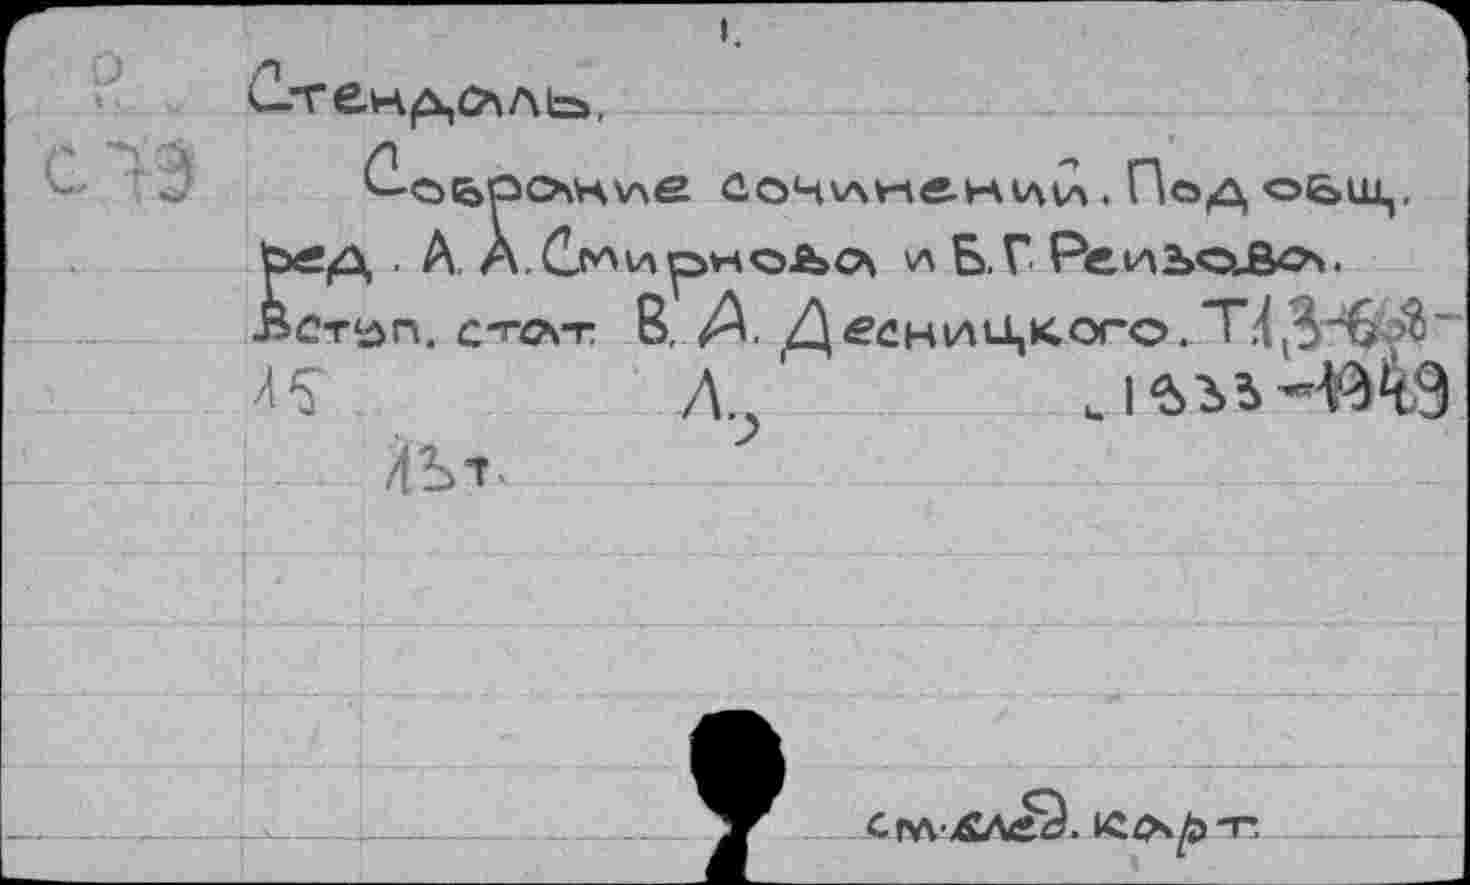 1.
Р
Стендаль,
С79
Собрание сочинении. Под общ.
ред. А. А. Смирнова и Б. Г. Реизова.
Вступ. стат. В. А. Десницкого. Т.1,3-6,8-
15 Л., 1933-1949
13 т.
см. след. карт.